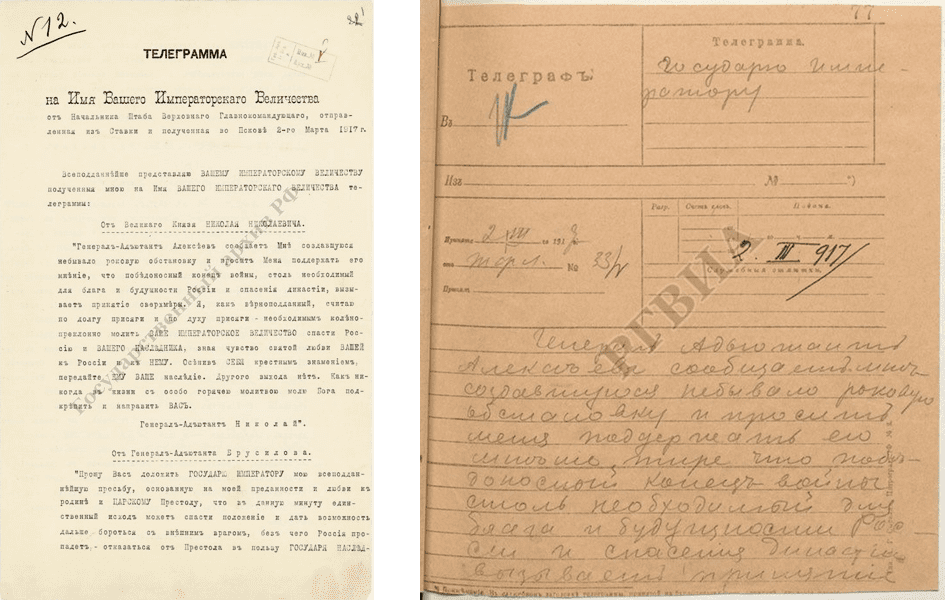 N 12.
ТЕЛЕГРАММА
на Имя Вашего Императорскаго Величества
отъ Начальника Штаба Верховнаго Главнокомандующаго, отправ-
ленная изъ Ставки и полученная во Псковѣ 2-го Марта 1917 г.
Всеподданнѣйше представляю ВАШЕМУ ИМПЕРАТОРСКОМУ ВЕЛИЧЕСТВУ
полученныя мною на Имя ВАШЕГО ИМПЕРАТОРСКАГО ВЕЛИЧЕСТВА те-
леграммы:
Отъ Великаго Князя НИКОЛАЯ НИКОЛАЕВИЧА.
"Генералъ-Адъютантъ Алексѣевъ сообщаетъ Мнѣ создавшуюся
небывало роковую обстановку и проситъ Меня поддержать его
мнѣніе, что побѣдоносный конецъ войны, столь необходимый
для блага и будущности Россіи и спасенія династіи, вызы-
ваетъ принятіе сверхмѣры. Я, какъ вѣрноподданный, считаю
по долгу присяги и по духу присяги - необходимымъ колѣно-
преклонно молить ВАШЕ ИМПЕРАТОРСКОЕ ВЕЛИЧЕСТВО спасти Рос-
сію и ВАШЕГО НАСЛѢДНИКА, зная чувство святой любви ВАШЕЙ
къ Россіи и къ НЕМУ. Осѣнивъ СЕБЯ крестнымъ знаменіемъ,
передайте ЕМУ ВАШЕ наслѣдіе. Другого выхода нѣтъ. Какъ ни-
когда въ жизни съ особо горячею молитвою молю Бога под-
крѣпить и направить ВАСЪ.
Генералъ-Адъютантъ Николай".
Отъ Генералъ-Адъютанта Брусилова.
"Прошу Васъ доложить ГОСУДАРЮ ИМПЕРАТОРУ мою всеподдан-
нѣйшую просьбу, основанную на моей преданности и любви къ
родинѣ и ЦАРСКОМУ Престолу, что въ данную минуту един-
ственный исходъ можетъ спасти положеніе и дать возможность
дальше бороться съ внѣшнимъ врагомъ, безъ чего Россія про-
падетъ,- отказаться отъ Престола въ пользу ГОСУДАРЯ НАСЛѢД-
Государственный архив РФ
77
Телеграфъ
Въ
Телеграмма.
Государю Импе-
ратору
Изъ
№
Принята 2 III го 191
№ 33/
Принялъ
Разр.
Счетъ словъ.
Подана.
2. III 917/
Служебныя отмѣтки.
РГВИА
Генералъ Адъютантъ
Алексѣевъ сообщаетъ мнѣ
создавшуюся небывало роковую
обстановку и проситъ
меня поддержать его
мнѣніе, тире что побѣ-
доносный конецъ войны
столь необходимый для
блага и будущности Рос
сіи и спасенія династіи
вызываетъ принятіе